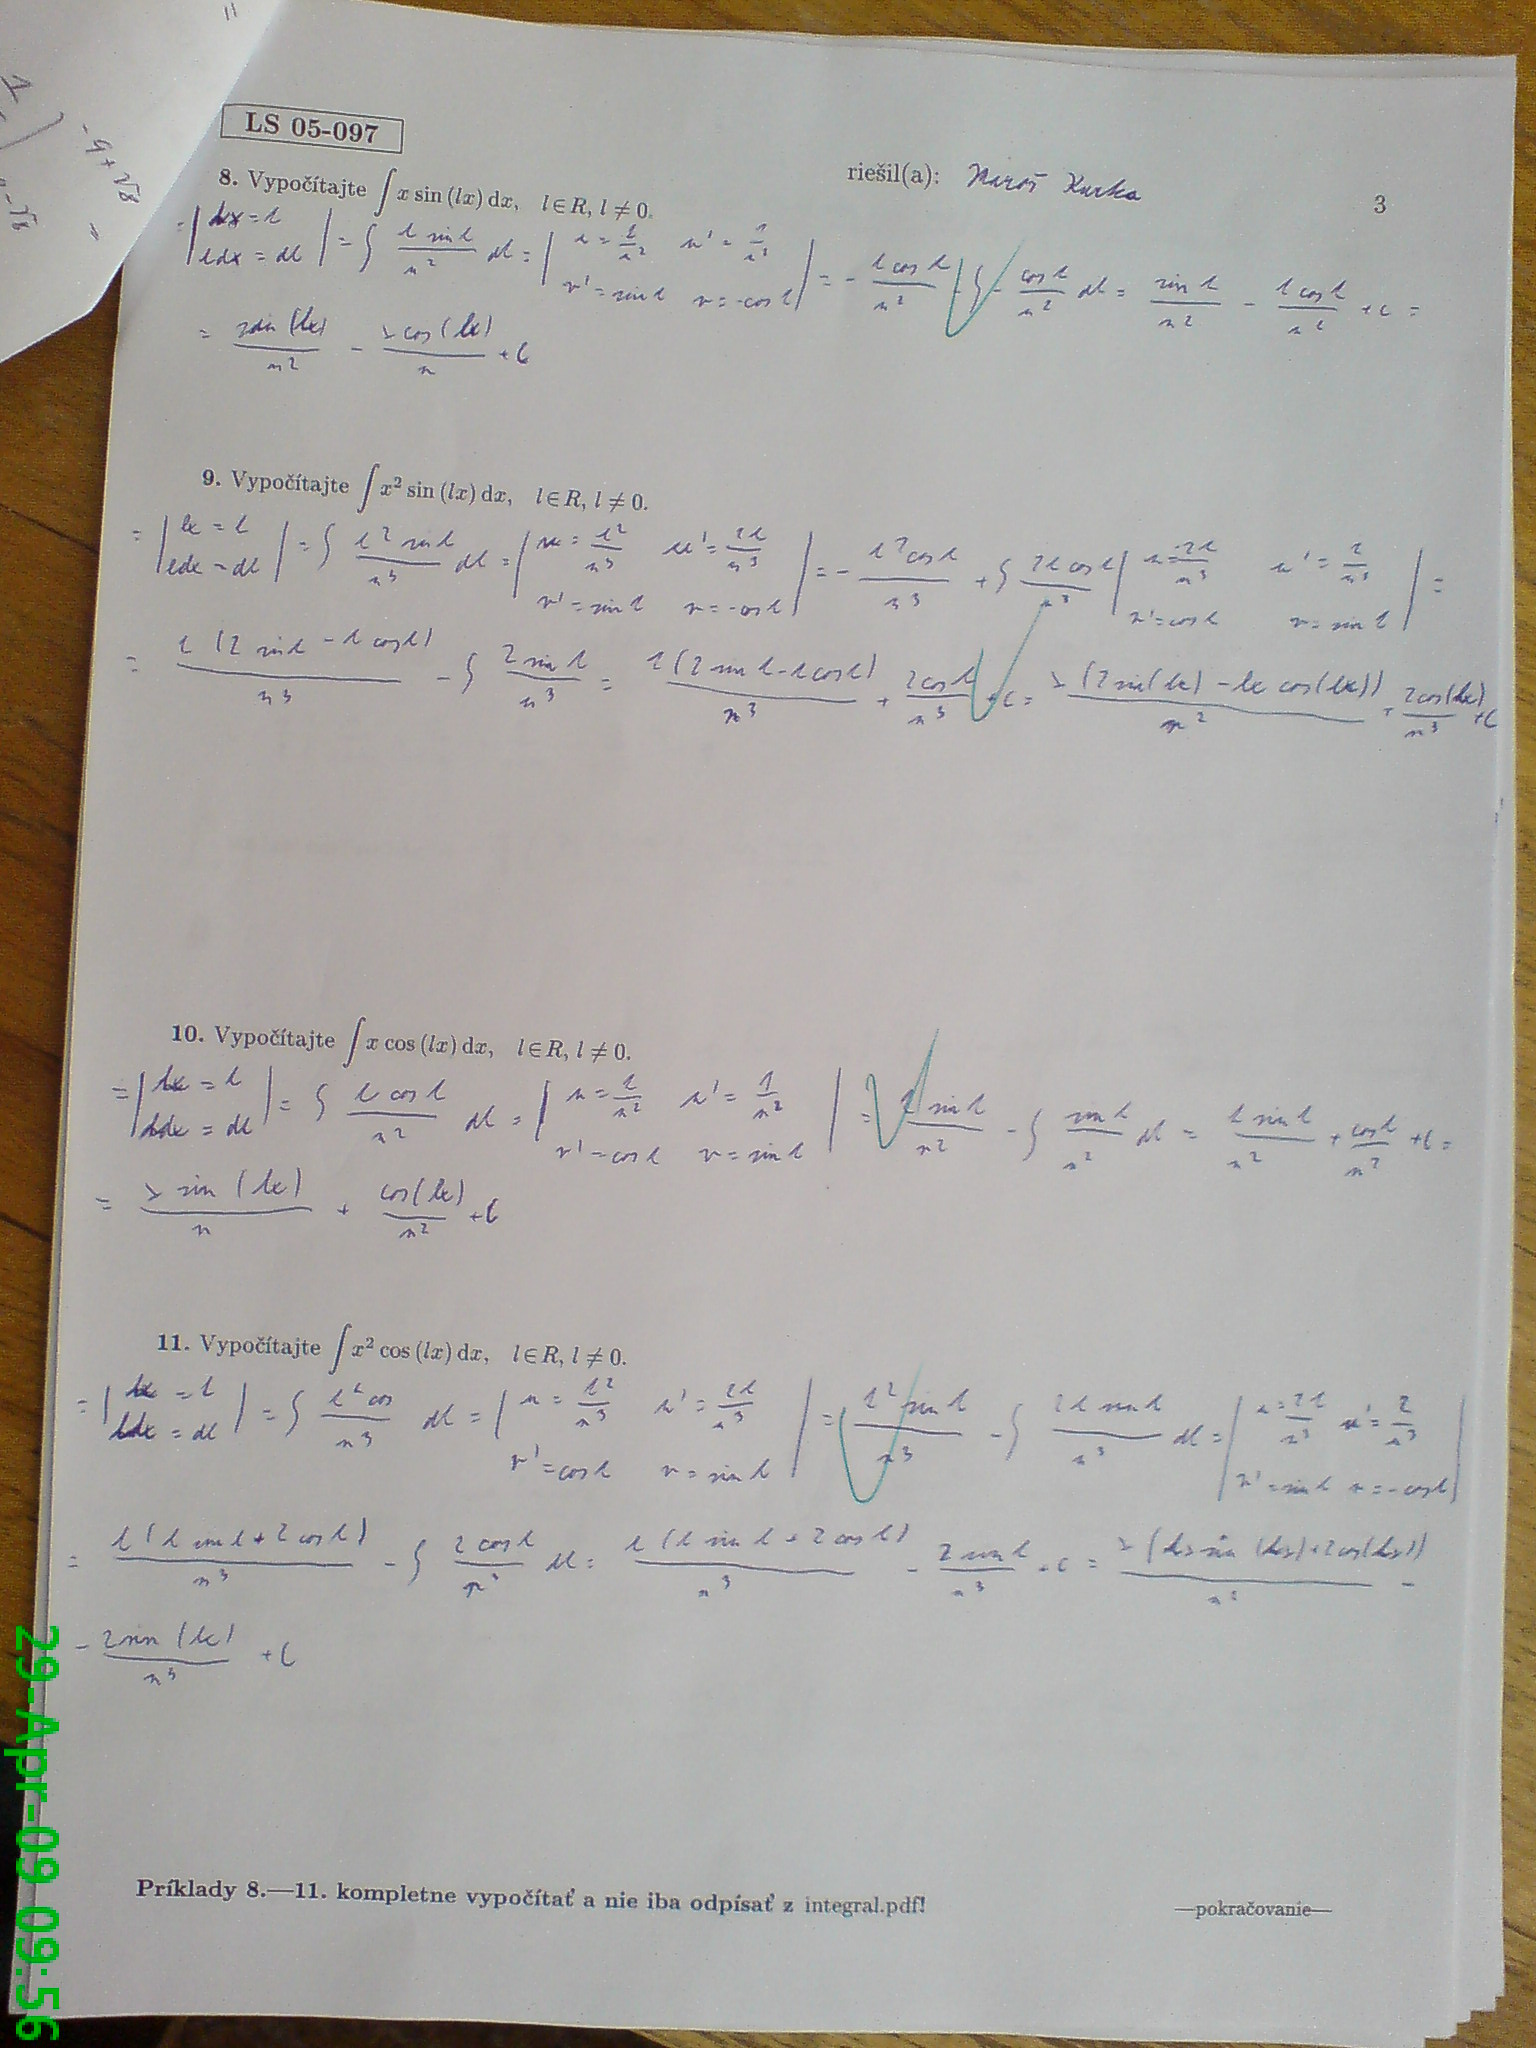 LS 05-097
riešil(a): Maroš Kurka
3
8. Vypočítajte ∫ x sin (lx) dx, l ∈ R, l ≠ 0.
= | lx = t
ldx = dt | = ∫ t sin t / n² dt = | u = t/n² u' = 1/n²
v' = sin t v = -cos t | = - t cos t / n² - ∫ - cos t / n² dt = sin t / n² - t cos t / n² + C =
= sin (lx) / n² - x cos (lx) / n + C
9. Vypočítajte ∫ x² sin (lx) dx, l ∈ R, l ≠ 0.
= | lx = t
ldx = dt | = ∫ t² sin t / n³ dt = | u = t²/n³ u' = 2t/n³
v' = sin t v = -cos t | = - t² cos t / n³ + ∫ 2t cos t / n³ | u = 2t/n³ u' = 2/n³
v' = cos t v = sin t | =
= t (2 sin t - t cos t) / n³ - ∫ 2 sin t / n³ = t (2 sin t - t cos t) / n³ + 2 cos t / n³ + C = x (2 sin(lx) - lx cos(lx)) / n² + 2 cos(lx) / n³ + C
10. Vypočítajte ∫ x cos (lx) dx, l ∈ R, l ≠ 0.
= | lx = t
ldx = dt | = ∫ t cos t / n² dt = | u = t/n² u' = 1/n²
v' = cos t v = sin t | = t sin t / n² - ∫ sin t / n² dt = t sin t / n² + cos t / n² + C =
= x sin (lx) / n + cos (lx) / n² + C
11. Vypočítajte ∫ x² cos (lx) dx, l ∈ R, l ≠ 0.
= | lx = t
ldx = dt | = ∫ t² cos / n³ dt = | u = t²/n³ u' = 2t/n³
v' = cos t v = sin t | = t² sin t / n³ - ∫ 2t sin t / n³ dt = | u = 2t/n³ u' = 2/n³
v' = sin t v = -cos t |
= t (t sin t + 2 cos t) / n³ - ∫ 2 cos t / n³ dt = t (t sin t + 2 cos t) / n³ - 2 sin t / n³ + C = x (lx sin (lx) + 2 cos (lx)) / n² -
- 2 sin (lx) / n³ + C
Príklady 8.—11. kompletne vypočítať a nie iba odpísať z integral.pdf!
—pokračovanie—
29-Apr-09 09:56